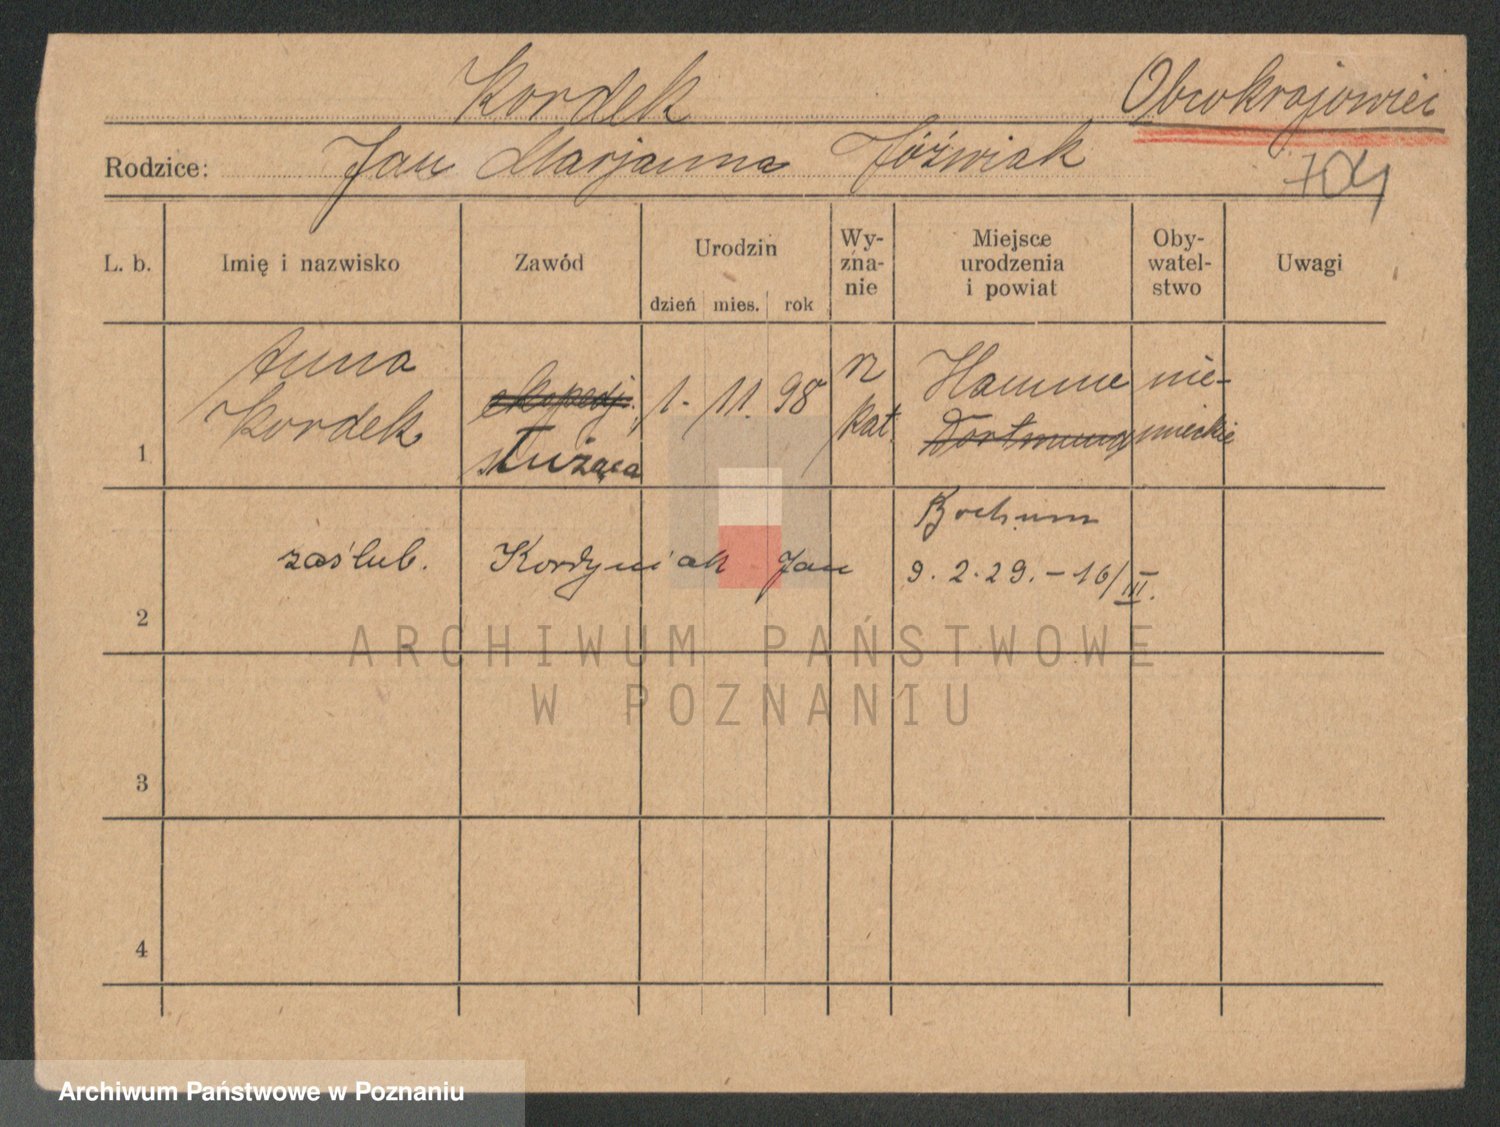 Kordek
Obcokrajowiec
Rodzice: Jan Marjanna Jóźwiak
704
L. b. Imię i nazwisko Zawód Urodzin dzień mies. rok Wy-zna-nie Miejsce urodzenia i powiat Oby-watel-stwo Uwagi
1 Anna Kordek ekspedj. służąca 1. 11. 98 rz kat. Hamme Dortmund Bochum nie-mieckie
2 zaślub. Kordyniak Jan 9. 2. 29. - 16/III.
3
4
ARCHIWUM PAŃSTWOWE
W POZNANIU
Archiwum Państwowe w Poznaniu